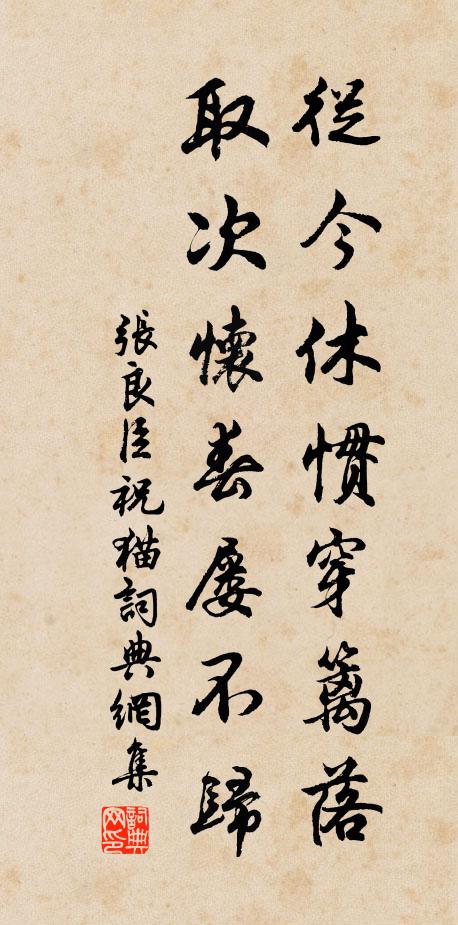 從今休慣穿籬落
取次懷春屡不歸
張良臣祝猫詞典網集
詞典网印